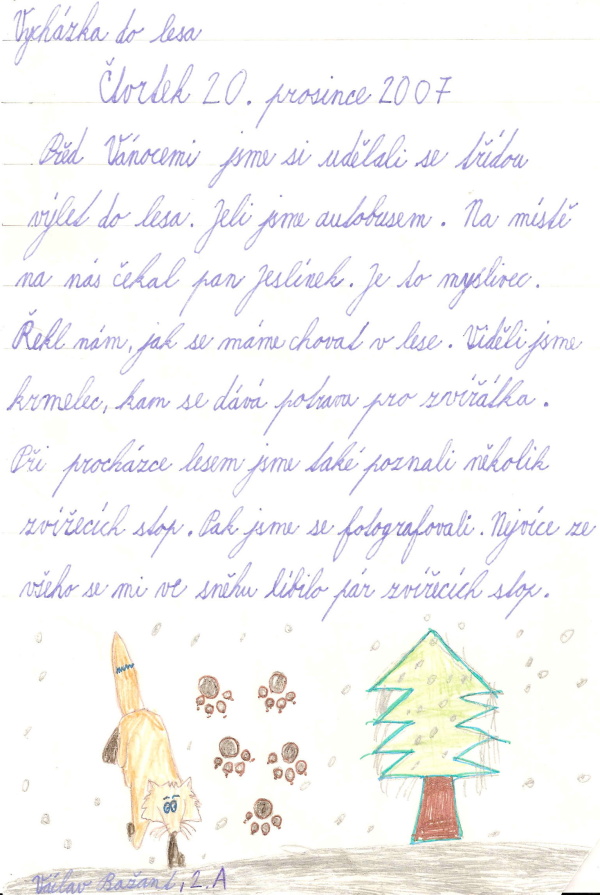 Vycházka do lesa
Čtvrtek 20. prosince 2007
Před Vánocemi jsme si udělali se třídou
výlet do lesa. Jeli jsme autobusem. Na místě
na nás čekal pan Jeslínek. Je to myslivec.
Řekl nám, jak se máme chovat v lese. Viděli jsme
krmelec, kam se dává potrava pro zvířátka.
Při procházce lesem jsme také poznali několik
zvířecích stop. Pak jsme se fotografovali. Nejvíce ze
všeho se mi ve sněhu líbilo pár zvířecích stop.
Václav Bažant, 2.A